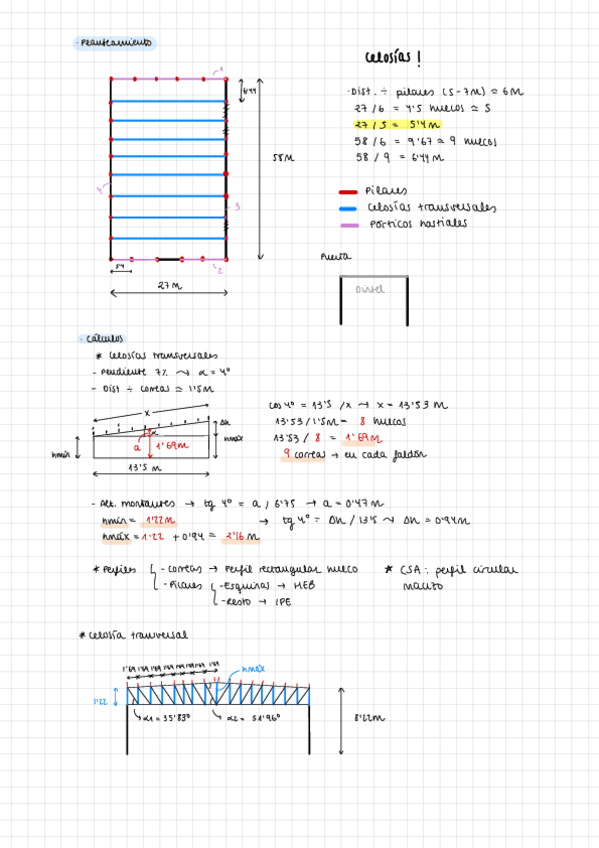 · Planteamiento
Celosías!
1
6'44
· Dist. ÷ pilares (5-7m) ≃ 6m
27 / 6 = 4'5 huecos ≃ 5
27 / 5 = 5'4m
58 / 6 = 9'67 ≃ 9 huecos
58 / 9 = 6'44m
58m
4
3
Pilares
Celosías transversales
Pórticos hastiales
2
5'4
27m
Puerta
Dintel
· Cálculos
* Celosías transversales
- Pendiente 7% → α = 4°
- Dist ÷ correas ≃ 1'5m
x
Δh
hmáx
α
a
1'69m
hmín
13'5 m
cos 4° = 13'5 /x → x = 13'53 m
13'53 / 1'5m = 8 huecos
13'53 / 8 = 1'69m
9 correas → en cada faldón
- Alt. montantes → tg 4° = a / 6'75 → a = 0'47m
hmín = 1'22m → tg 4° = Δh / 13'5 → Δh = 0'94m
hmáx = 1'22 + 0'94 = 2'16 m
* Perfiles
- Correas → Perfil rectangular hueco
- Pilares
- Esquinas → HEB
- Resto → IPE
* CSA: perfil circular
macizo
* Celosía tranversal
1'69 1'69 1'69 1'69 1'69 1'69 1'69 1'69
hmáx
1'22
α1 = 35'83°
α2 = 51'96°
8'22m